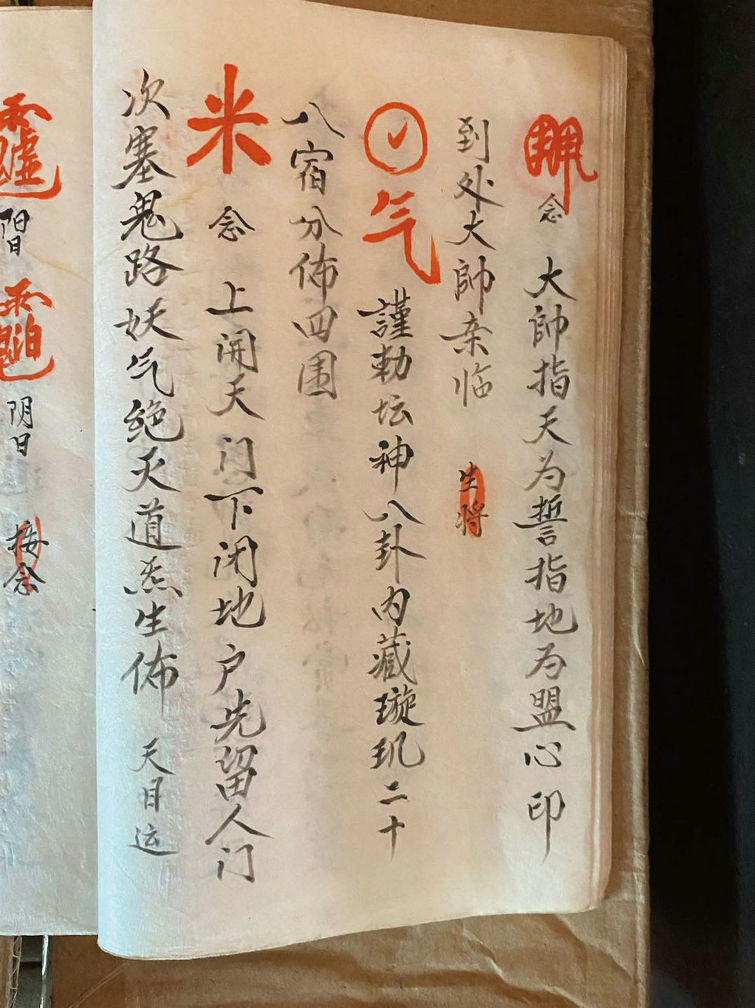 念 大帥指天为誓指地为盟心印
到处大帥亲临 生将
气 謹勅坛神八卦内藏璇玑二十
八宿分佈四围
米 念 上開天门下闭地户先留人门
次塞鬼路妖气绝灭道炁生佈 天目运
阴日 按念